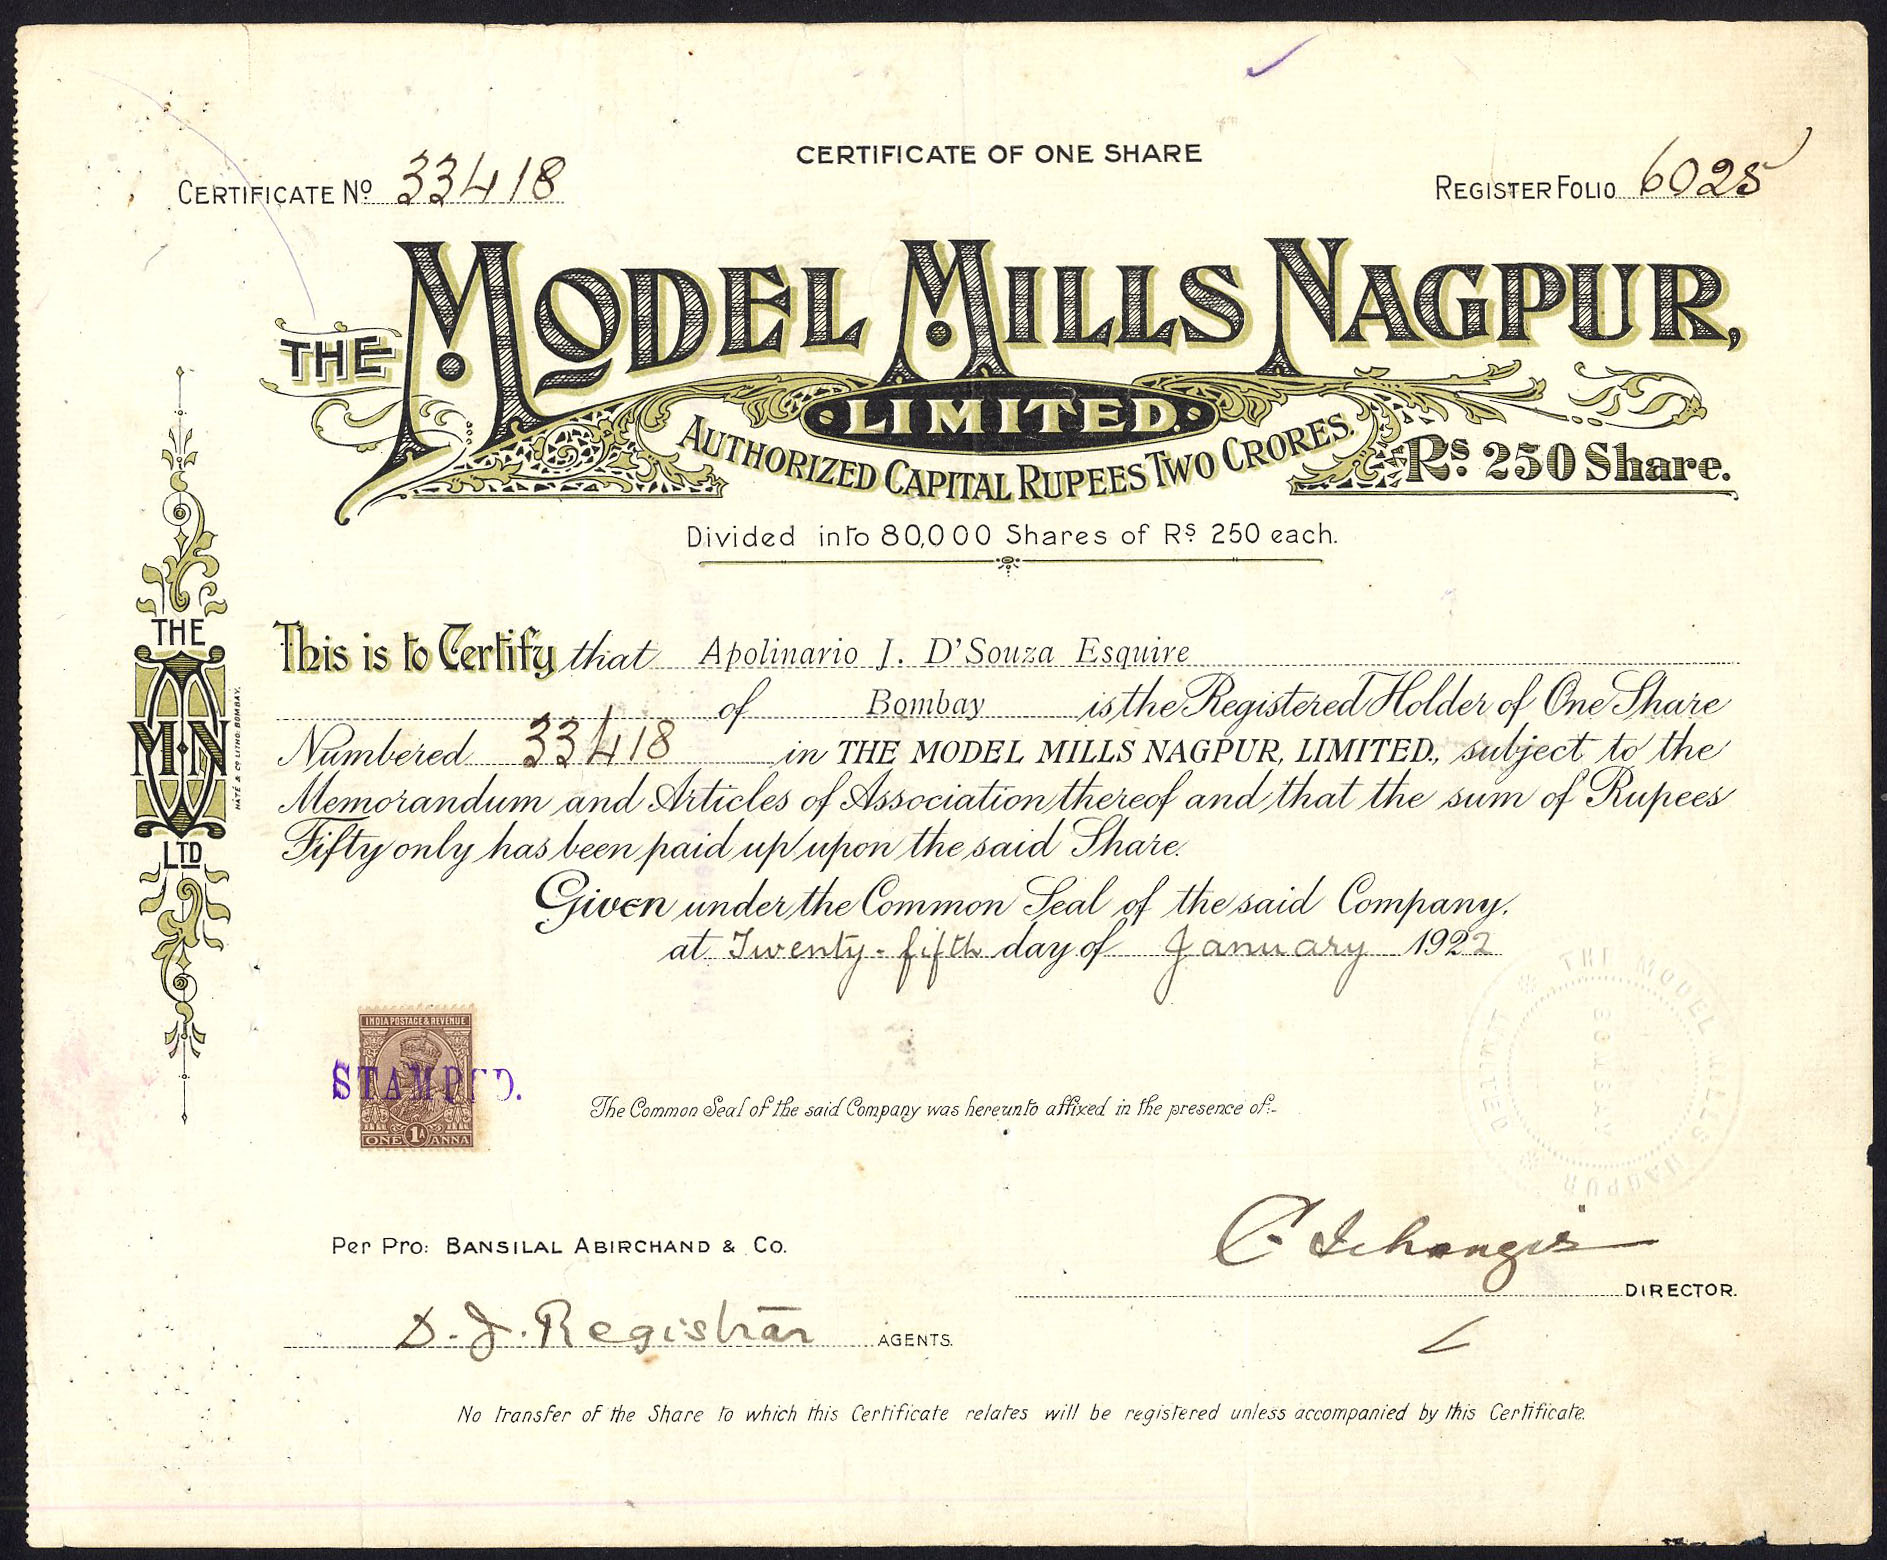 CERTIFICATE OF ONE SHARE
CERTIFICATE Nº 33418
REGISTER FOLIO 6025
THE MODEL MILLS NAGPUR,
LIMITED.
AUTHORIZED CAPITAL RUPEES TWO CRORES.
Rs. 250 Share.
Divided into 80,000 Shares of Rs. 250 each.
This is to Certify that Apolinario J. D'Souza Esquire
of Bombay is the Registered Holder of One Share
Numbered 33418 in THE MODEL MILLS NAGPUR, LIMITED., subject to the
Memorandum and Articles of Association thereof and that the sum of Rupees
Fifty only has been paid up upon the said Share.
Given under the Common Seal of the said Company.
at Twenty-fifth day of January 1922
THE
M.N
LTD
HATÉ & CO LITHO: BOMBAY.
INDIA POSTAGE & REVENUE
STAMPED.
ONE 1A ANNA
The Common Seal of the said Company was hereunto affixed in the presence of:-
THE MODEL MILLS NAGPUR LIMITED
BOMBAY
Per Pro: BANSILAL ABIRCHAND & Co.
D. J. Registrar AGENTS.
DIRECTOR.
No transfer of the Share to which this Certificate relates will be registered unless accompanied by this Certificate.